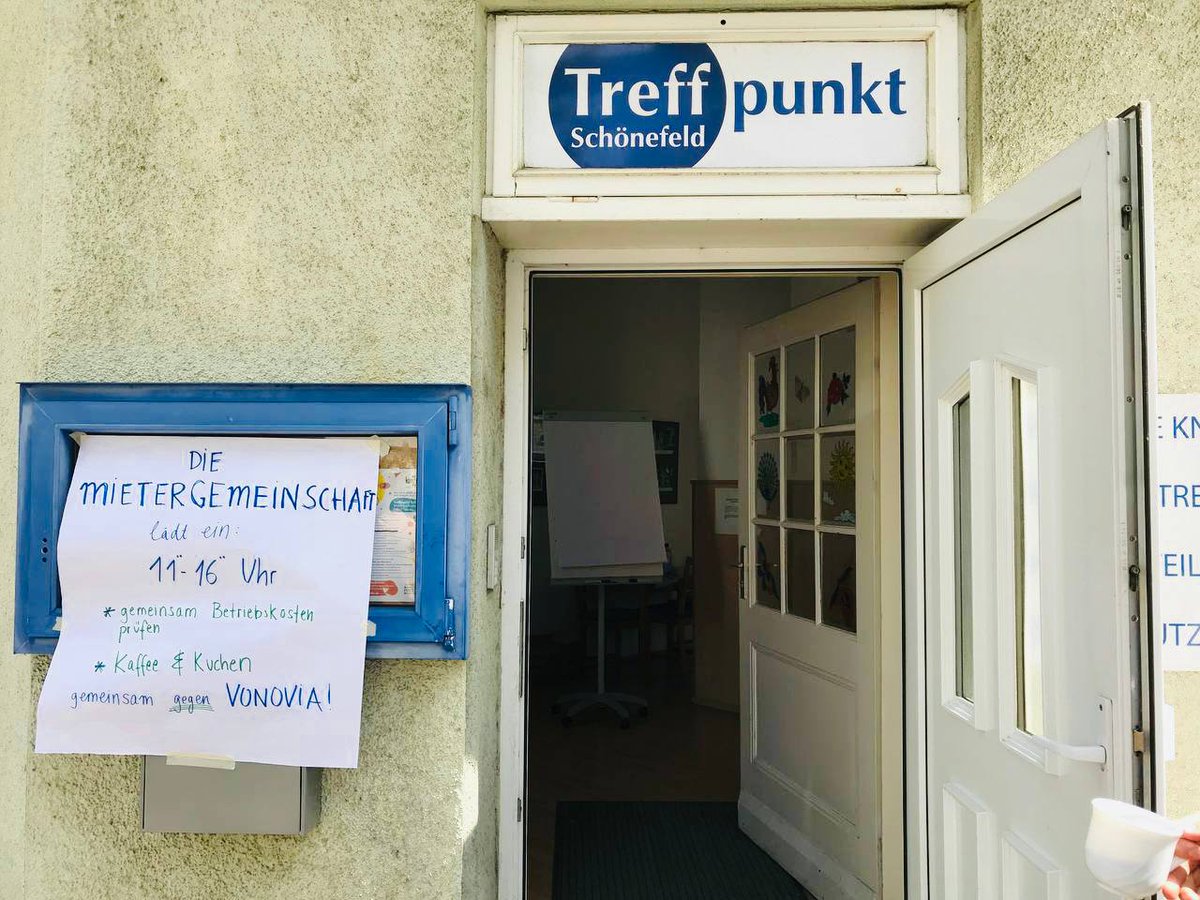 Treffpunkt
Schönefeld
DIE
MIETERGEMEINSCHAFT
lädt ein:
11°°-16°° Uhr
* gemeinsam Betriebskosten
prüfen
* Kaffee & Kuchen
gemeinsam gegen VONOVIA!
E KN
TRE
EIL
UTZ